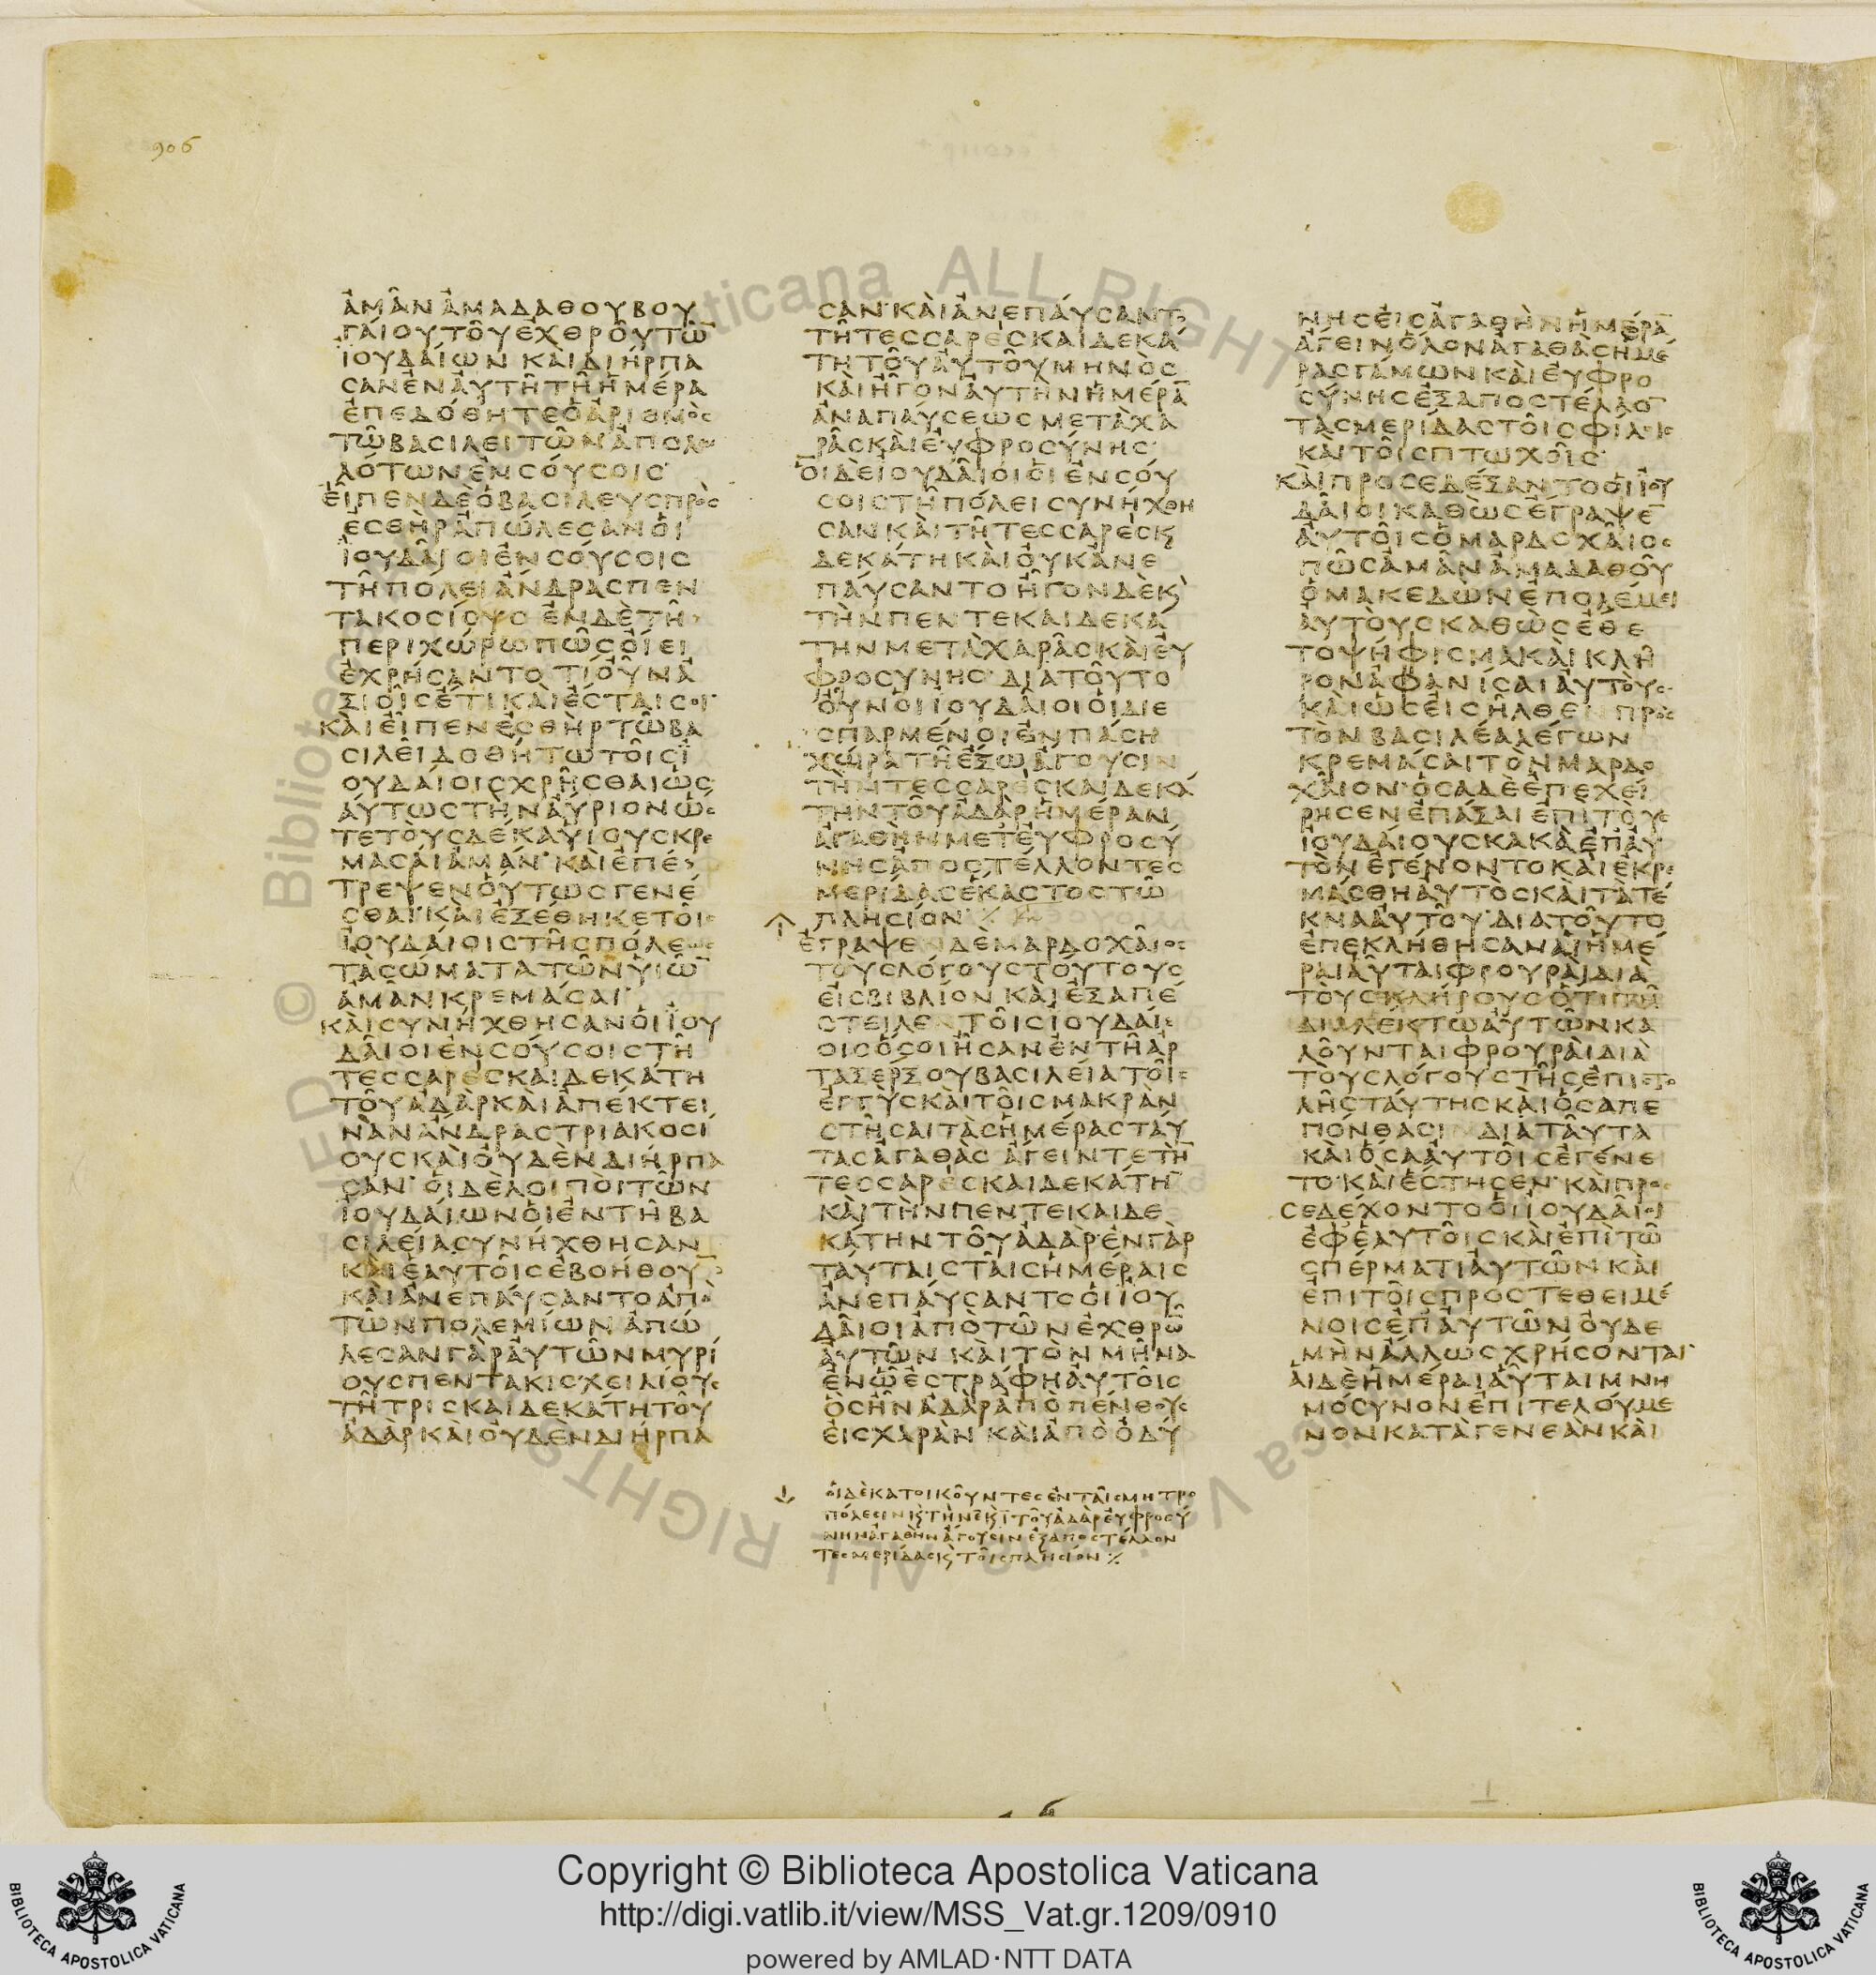 906
ἀμὰν ἀμαδαθου βου
γαίου τοῦ ἐχθροῦ τῶ̅
ϊουδαίων καὶ διήρπα
σαν ἐν αὐτῆ τῆ ἡμέρα
ἐπεδόθη τε ὁ ἀριθμὸς
τῶ βασιλει τῶν ἀπολω
λότων ἐν σούσοις
εἶπεν δὲ ὁ βασιλευς πρὸς
ἐσθὴρ ἀπώλεσαν οἱ
ϊουδαῖοι ἐν σούσοις
τῆ πόλει ἄνδρας πεν
τακοσίους ἐν δὲ τῆ
περιχώρω πῶς οἴει
ἐχρήσαντο τί οὖν ἀ
ξιοῖς ἔτι καὶ ἔσται σοι
καὶ εἶπεν ἐσθὴρ τῶ βα
σιλεῖ δοθήτω τοῖς ϊ
ουδαίοις χρῆσθαι ὡς
αύτως τὴν αὔριον ὥς
τε τοὺς δέκα υἱους κρε
μάσαι ἀμάν· καὶ ἐπέ
τρεψεν οὕτως γενέ
σθαι· καὶ ἐξέθηκε τοῖς
ϊουδαίοις τῆς πόλεως
τὰ σώματα τῶν υἱῶ̅
ἀμὰν κρεμάσαι·
καὶ συνήχθησαν οἱ ϊου
δαῖοι ἐν σούσοις τῆ
τεσσαρεσκαιδεκάτη
τοῦ ἀδὰρ καὶ ἀπέκτει
ναν ἄνδρας τριακοσί
ους καὶ οὐδὲν διήρπα
σαν· οἱ δὲ λοιποὶ τῶν
ϊουδαίων οἱ ἐν τῆ βα
σιλεία συνήχθησαν
καὶ ἑαυτοῖς ἐβοήθου
καὶ ἀνεπαύσαντο ἀπὸ
τῶν πολεμίων ἀπώ
λεσαν γὰρ αὐτῶν μυρί
ους πεντακισχειλίους
τῆ τρισκαιδεκάτη τοῦ
ἀδὰρ καὶ οὐδεν διήρπα
σαν· καὶ ἀνεπάυσαντο
τῆ τεσσαρεσκαιδεκά
τη τοῦ αὐτοῦ μηνὸς
καὶ ἦγον αὐτὴν ἡμέρα̅
ἀναπαύσεως μετὰ χα
ρᾶς καὶ εὐφροσύνης·
οἱ δὲ ϊουδαῖοι οἱ ἐν σού
σοις τῆ πόλει συνήχθη
σαν καὶ τῆ τεσσαρεσκ
δεκάτη καὶ οὐκ ἀνε
παύσαντο ἦγον δὲ κ
τὴν πεντεκαιδεκά
την μετὰ χαρᾶς καὶ εὐ
φροσυνης· διὰ τοῦτο
οὖν οἱ ϊουδαῖοι οἱ διε
σπαρμένοι ἐν πάση
χώρα τῆ ἔξω ἄγουσιν
τὴν τεσσαρεσκαιδεκά
την τοῦ ἀδὰρ ἡμέραν
ἀγαθὴν μετ εὐφροσύ
νης ἀποςτέλλοντες
μερίδας ἕκαστος τῶ
πλησίον·
ἔγραψεν δὲ μαρδοχαῖος
τοὺς λόγους τούτους
εἰς βιβλίον καὶ ἐξαπέ
στειλεν τοῖς ϊουδαί
οις ὅσοι ἦσαν ἐν τῆ ἀρ
ταξέρξου βασιλεία τοῖς
ἐγγὺς καὶ τοῖς μακρὰν
στῆσαι τὰς ἡμέρας ταύ
τας ἀγαθὰς ἄγειν τε τὴ̅
τεσσαρεσκαιδεκάτη̅
καὶ τὴν πεντεκαιδε
κάτην τοῦ ἀδάρ· ἐν γὰρ
ταύταις ταῖς ἡμέραις
ἀνεπάυσαντο οἱ ϊου
δαῖοι ἀπὸ τῶν ἐχθρῶ̅
αὐτῶν καὶ τὸν μῆνα
ἐν ᾧ ἐστράφη αὐτοῖς
ὃς ἦν ἀδὰρ ἀπὸ πένθους
εἰς χαρὰν καὶ ἀπὸ ὀδύ
οἱ δὲ κατοικοῦντες ἐν ταῖς μητρο
πόλεσιν κ τὴν ιε κ τοῦ ἀδὰρ εὐφροσύ
νην ἀγαθὴν ἄγουσιν ἐξαποστέλλον
τες μερίδας κ τοῖς πλησίον
νης εἰς ἀγαθὴν ἡμέρα̅
ἄγειν ὅλον ἀγαθὰς ἡμέ
ρας γάμων καὶ εὐφρο
σύνης ἐξαποστέλλο̅
τας μερίδας τοῖς φίλοις
καὶ τοῖς πτωχοῖς·
καὶ προσεδέξαντο οἱ ϊου
δαῖοι καθὼς ἔγραψε̅
αὐτοῖς ὁ μαρδοχαῖος
πῶς ἀμὰν ἀμαδαθοῦ
ὁ μακεδὼν ἐπολέμει
αὐτοὺς καθὼς ἔθε
το ψήφισμα καὶ κλῆ
ρον ἀφανίσαι αὐτοὺς
καὶ ὡς εἰσῆλθεν πρὸς
τὸν βασιλέα λέγων
κρεμάσαι τὸν μαρδο
χαῖον· ὅσα δὲ ἐπεχεί
ρησεν ἐπάξαι ἐπὶ τοὺς
ϊουδαίους κακὰ ἐπ αὐ
τὸν ἐγένοντο καὶ ἐκρε
μάσθη αὐτὸς καὶ τὰ τέ
κνα αὐτοῦ· διὰ τοῦτο
ἐπεκλήθησαν αἱ ἡμέ
ραι αὗται φρουραὶ διὰ
τοὺς κλήρους ὅτι τῆ
διαλέκτω αὐτῶν κα
λοῦνται φρουραὶ διὰ
τοὺς λόγους τῆς ἐπιστο
λῆς ταύτης καὶ ὅσα πε
πόνθασιν διὰ ταῦτα
καὶ ὅσα αὐτοῖς ἐγένε
το· καὶ ἔστησεν· καὶ προ
σεδέχοντο οἱ ϊουδαῖοι
ἐφ ἑαυτοῖς καὶ ἐπὶ τῶ
σπέρματι αὐτῶν καὶ
ἐπὶ τοῖς προστεθειμέ
νοις ἐπ αὐτῶν οὐδε
μὴν ἄλλως χρήσονται·
αἱ δὲ ἡμέραι αὗται μνη
μόσυνον ἐπιτελούμε
νον κατὰ γενεὰν καὶ
Copyright © Biblioteca Apostolica Vaticana
http://digi.vatlib.it/view/MSS_Vat.gr.1209/0910
powered by AMLAD·NTT DATA
BIBLIOTECA APOSTOLICA VATICANA
BIBLIOTECA APOSTOLICA VATICANA